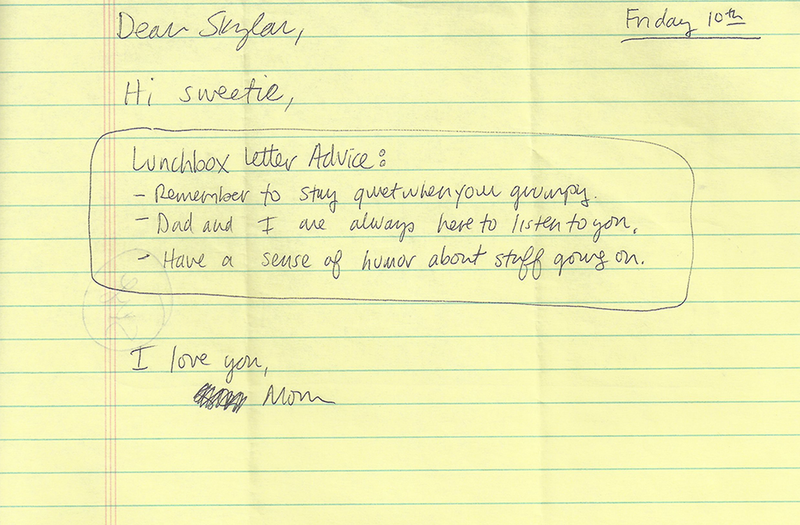 Dear Skylar,
Friday 10th
Hi sweetie,
Lunchbox Letter Advice:
- Remember to stay quiet when your grumpy.
- Dad and I are always here to listen to you.
- Have a sense of humor about stuff going on.
I love you,
Mom